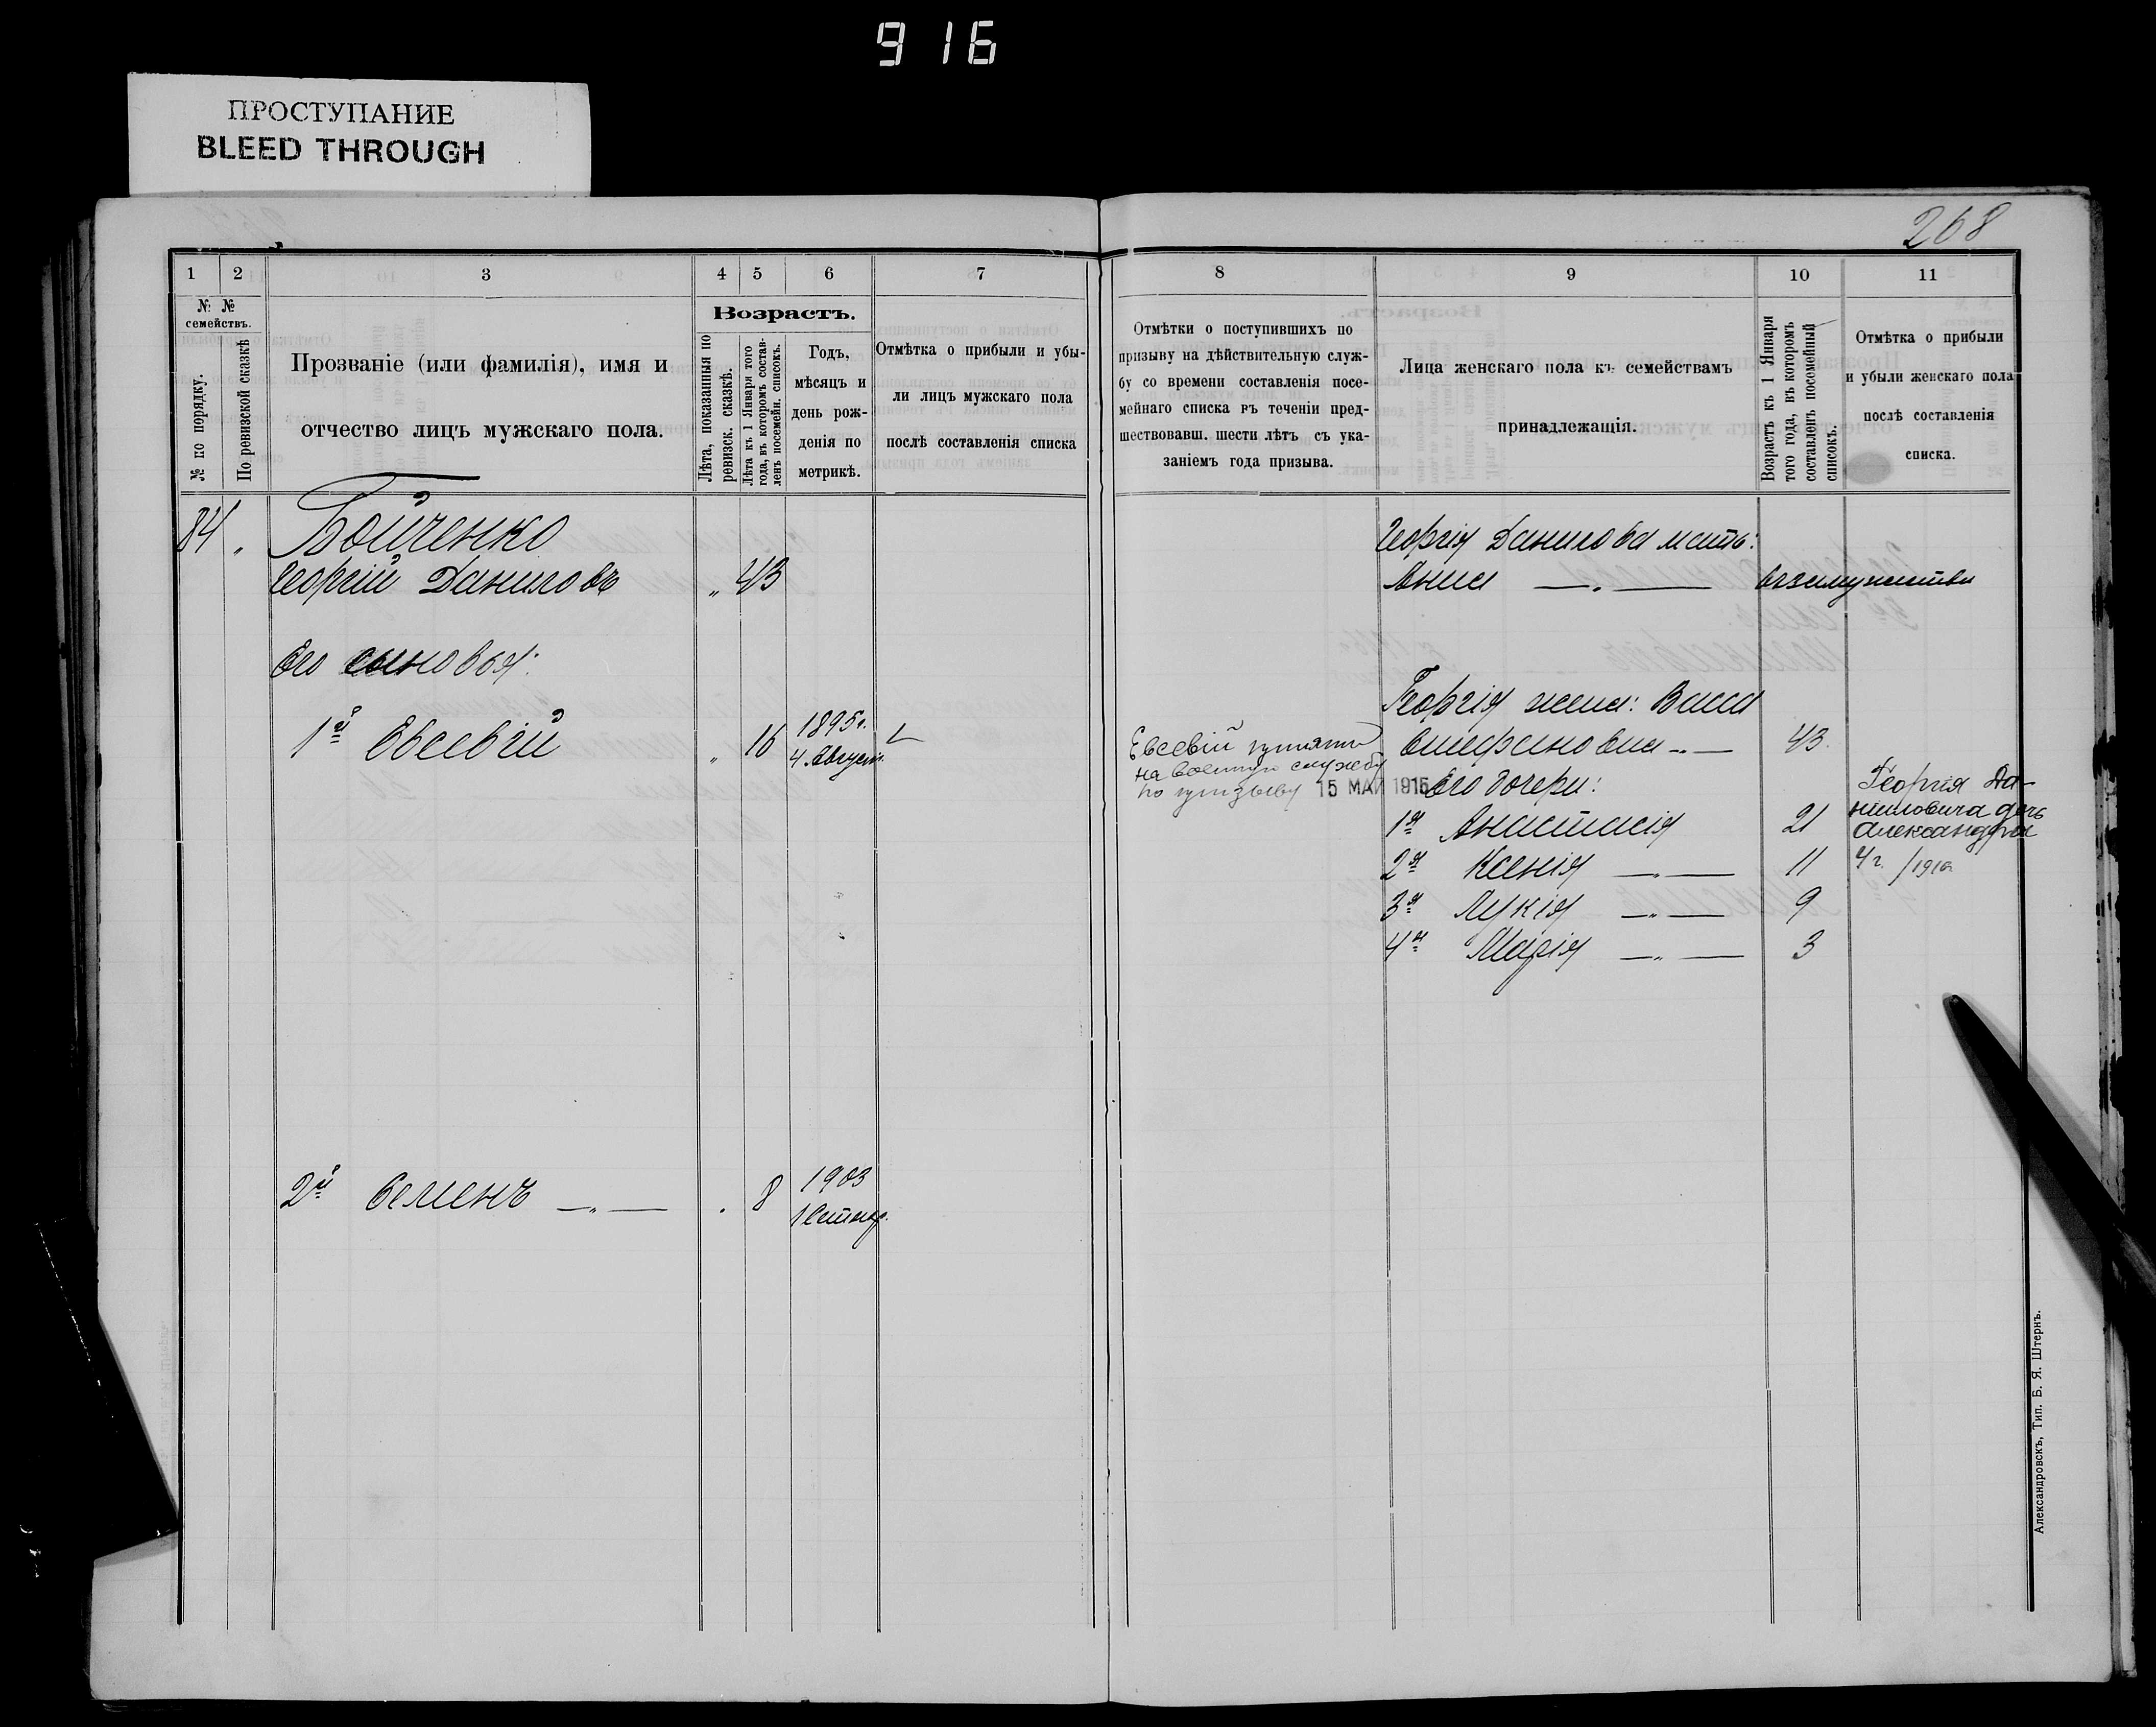 916
ПРОСТУПАНИЕ
BLEED THROUGH
268
1 2 3 4 5 6 7
№ №
семействъ.
№ по порядку.
По ревизской сказкѣ
Прозваніе (или фамилія), имя и
отчество лицъ мужскаго пола.
Возрастъ.
Лѣта, показанныя по
ревизск. сказкѣ.
Лѣта къ 1 Января того
года, въ которомъ состав-
ленъ посемейн. списокъ.
Годъ,
мѣсяцъ и
день рож-
денія по
метрикѣ.
Отмѣтка о прибыли и убы-
ли лицъ мужскаго пола
послѣ составленія списка
84 Бойченко
Георгій Даниловъ " 43
Его сыновья:
1й Евсевій " 16 1895г.
4 Август.
2й Семенъ — " — 8 1903
1 Сентяб.
8 9 10 11
Отмѣтки о поступившихъ по
призыву на дѣйствительную служ-
бу со времени составленія посе-
мейнаго списка въ теченіи пред-
шествовавш. шести лѣтъ съ ука-
заніемъ года призыва.
Лица женскаго пола къ семействамъ
принадлежащія.
Возрастъ къ 1 Января
того года, въ которомъ
составленъ посемейный
списокъ.
Отмѣтка о прибыли
и убыли женскаго пола
послѣ составленія
списка.
Евсевій принятъ
на военную службу
по призыву 15 МАЙ 1915
Георгія Данилова мать:
Анна — " — взамужествѣ
Георгія жена: Васса
— " — 43
Его дочери:
1я Анастасія 21
2я Ксенія — " — 11
3я Лукія — " — 9
4я Марія — " — 3
Георгія Да-
ниловича дочь
Александра
4 г. /1910
Александровскъ, Тип. Б. Я. Штернъ.